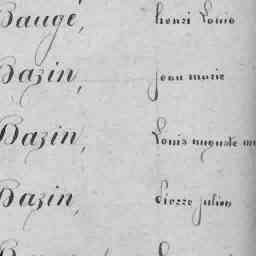 Baugé, henri Louis
Bazin, jean marie
Bazin, Louis auguste
Bazin, Pierre julien